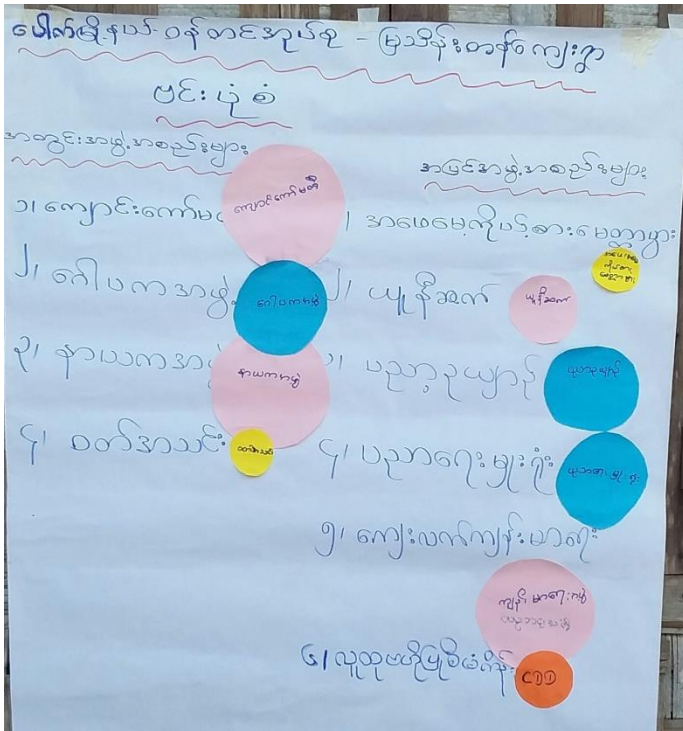 ပေါက်မြို့နယ် ဝန်တင်အုပ်စု - မြသိန်းတန်ကျေးရွာ
ဗင်းပုံစံ
အတွင်းအဖွဲ့အစည်းများ
၁၊ ကျောင်းကော်မ
ကျောင်းကော်မတီ
၂၊ ဂေါပကအဖွဲ့
ဂေါပကအဖွဲ့
၃၊ နာယကအ
နာယကအဖွဲ့
၄၊ ဝတ်အသင်း
ဝတ်အသင်း
အပြင်အဖွဲ့အစည်းများ
၊ အမေမေ့ကိုပင့်စားမေတ္တာပွား
၂၊ ယူနီဆက်
ယူနီဆက်
၊ ပညာ့ဥယျာဉ်
ပညာ့ဥယျာဉ်
၄၊ ပညာရေးမှူးရုံး
ပညာရေးမှူးရုံး
၅၊ ကျေးလက်ကျန်းမာရေး
ကျန်းမာရေးအဖွဲ့
၆၊ လူထုဗဟိုပြုစီမံကိန်း
CDD